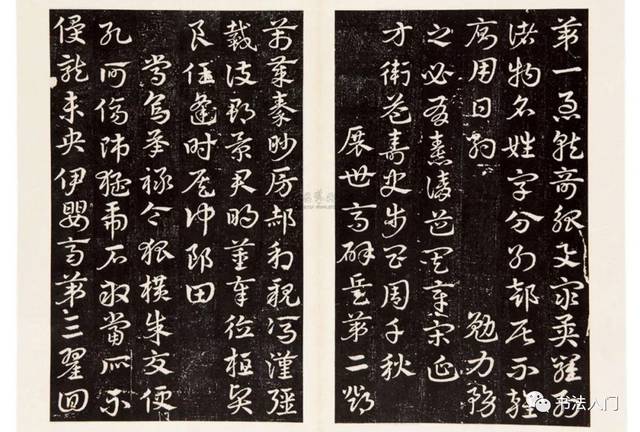 第一急就奇觚與衆異羅列
諸物名姓字分別部居不雜
廁用日約 勉力務
之必有憙請道其章宋延
方衛益壽史步昌周千秋
展世高辟兵第二鄧
萬歲秦眇房郝利親馮漢彊
戴護郡景君明董奉德桓賢
良任逢時侯仲郎田
常烏承祿令狐橫朱交便
孔何傷師猛虎石敢當所不
侵龍未央伊嬰齊第三翟回
书法入门